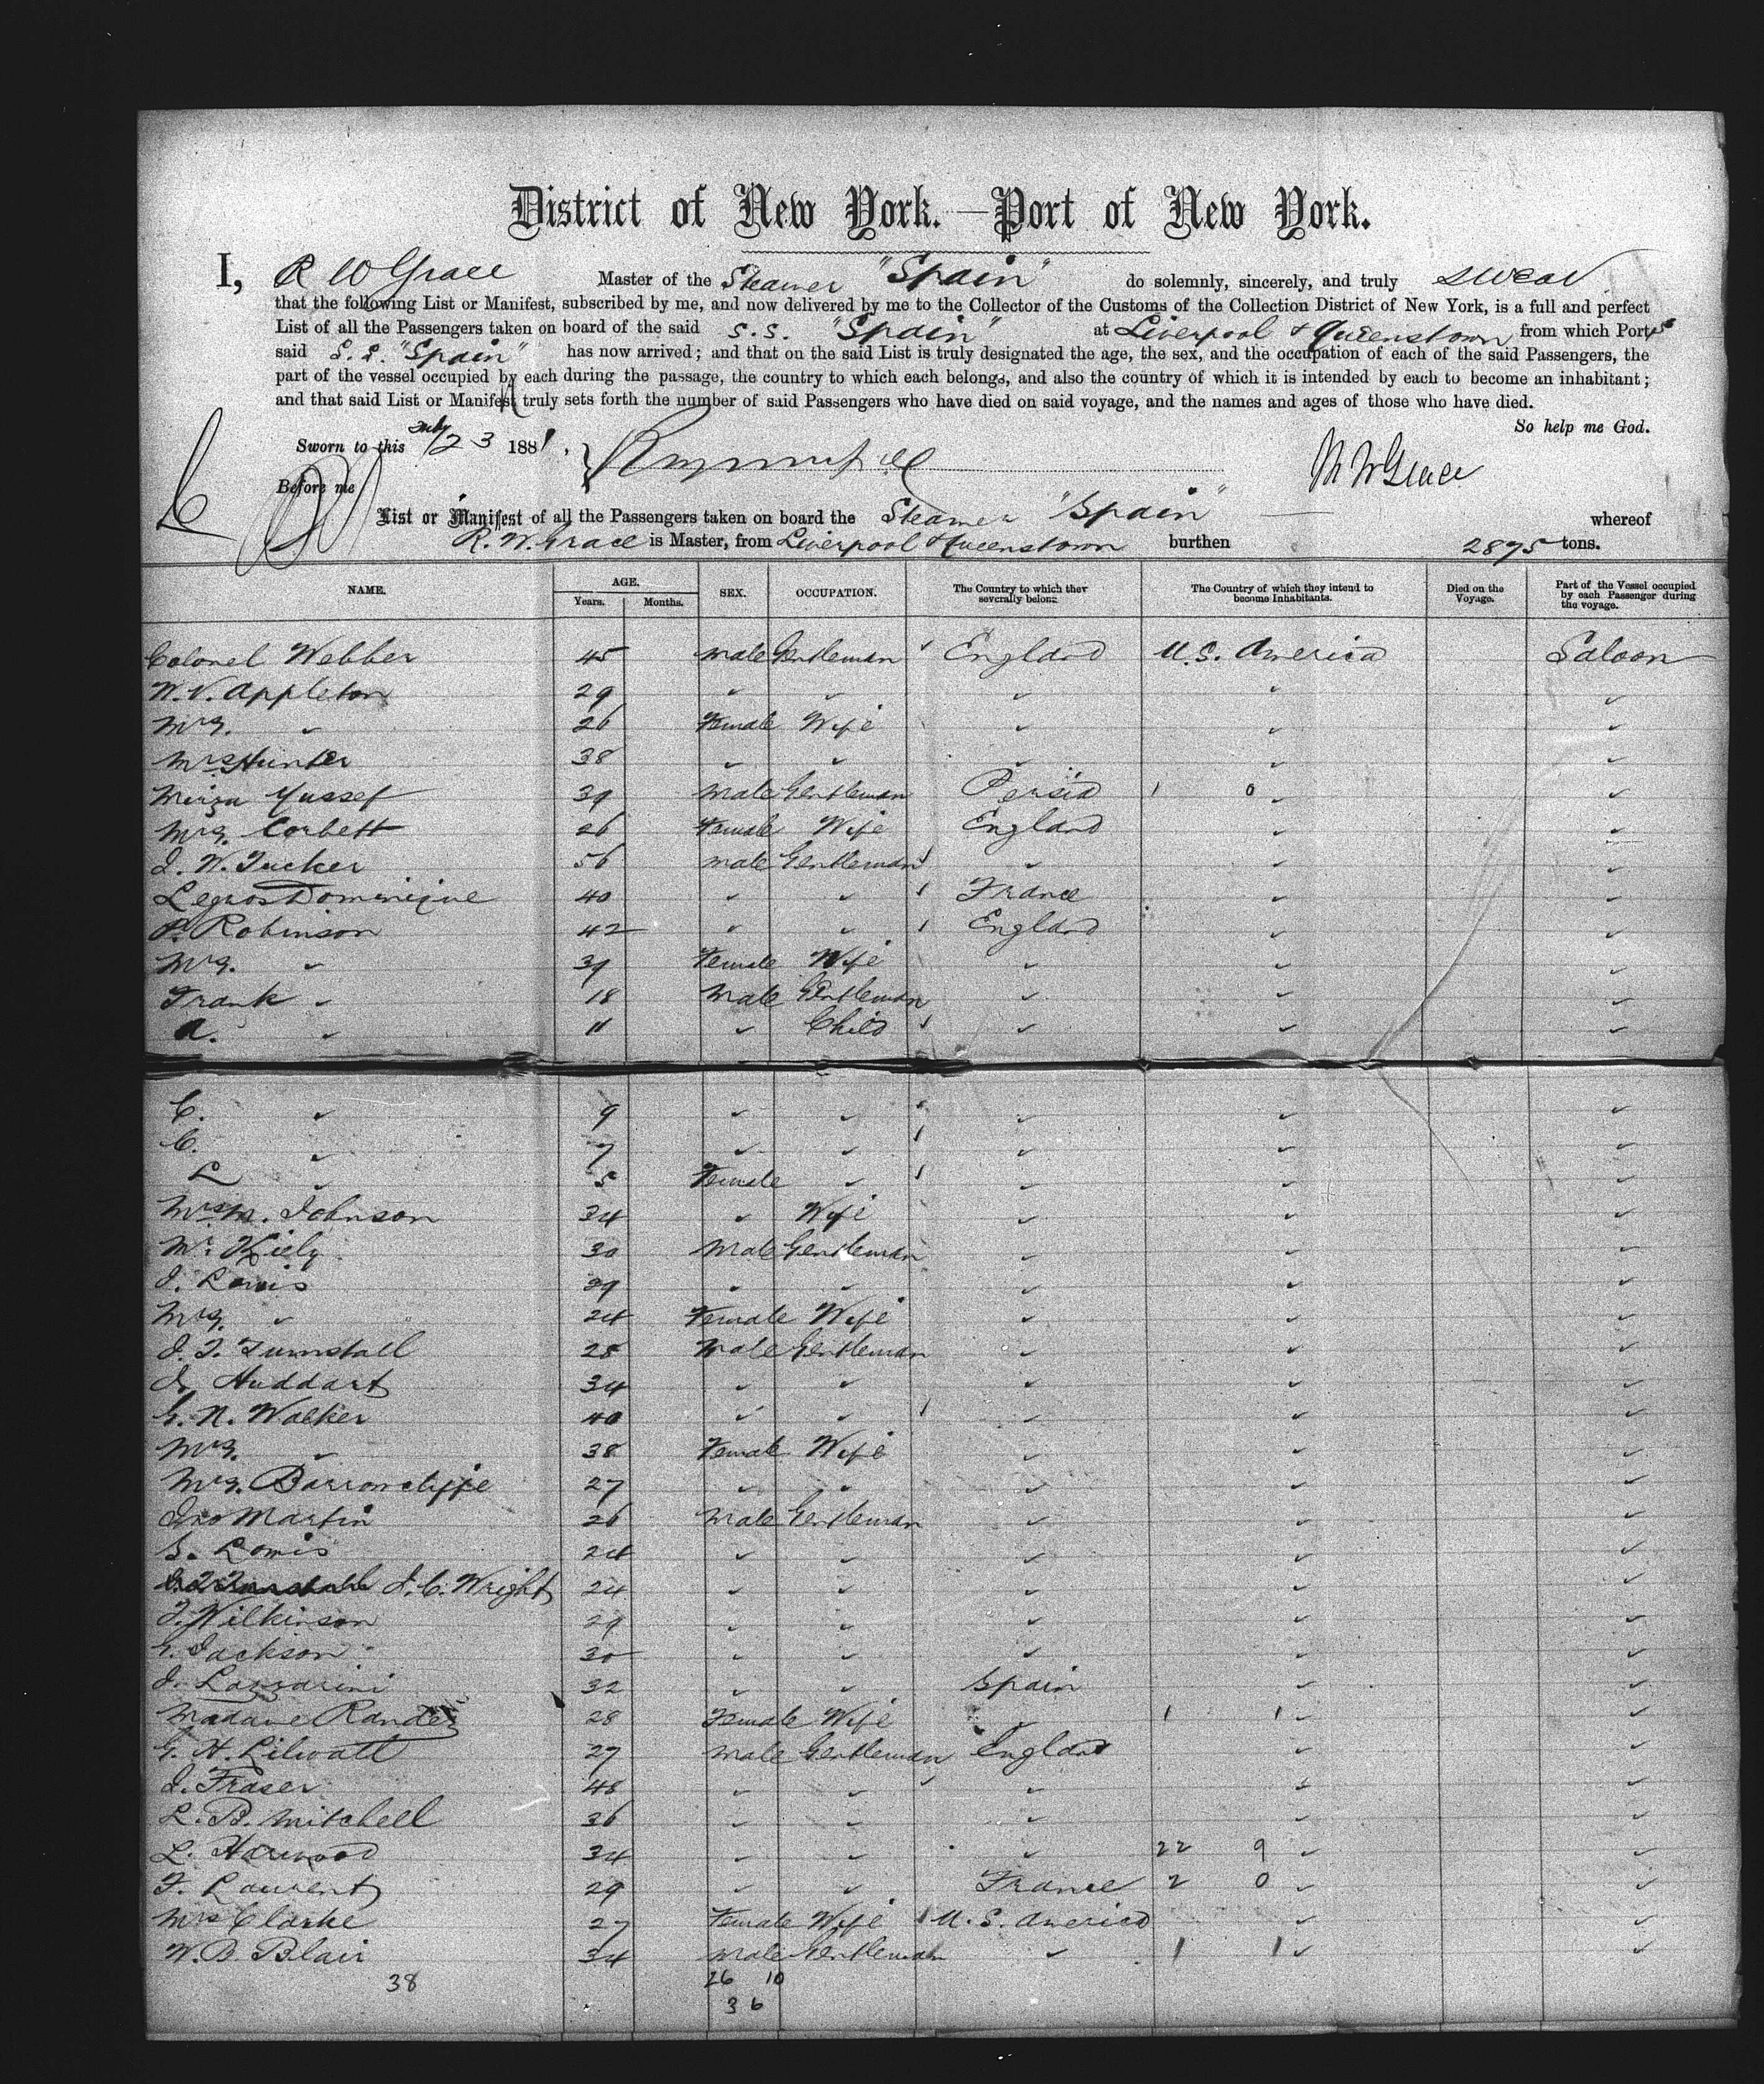 District of New York.—Port of New York.
I, R W Grace Master of the Steamer "Spain" do solemnly, sincerely, and truly swear
that the following List or Manifest, subscribed by me, and now delivered by me to the Collector of the Customs of the Collection District of New York, is a full and perfect
List of all the Passengers taken on board of the said S.S. "Spain" at Liverpool & Queenstown from which Ports
said S.S. "Spain" has now arrived; and that on the said List is truly designated the age, the sex, and the occupation of each of the said Passengers, the
part of the vessel occupied by each during the passage, the country to which each belongs, and also the country of which it is intended by each to become an inhabitant;
and that said List or Manifest truly sets forth the number of said Passengers who have died on said voyage, and the names and ages of those who have died.
So help me God.
Sworn to this July 23 1881, R W Grace
Before me
List or Manifest of all the Passengers taken on board the Steamer "Spain" whereof
R. W. Grace is Master, from Liverpool & Queenstown burthen 2875 tons.
NAME. AGE. Years. Months. SEX. OCCUPATION. The Country to which they severally belong. The Country of which they intend to become Inhabitants. Died on the Voyage. Part of the Vessel occupied by each Passenger during the voyage.
Colonel Webber 45 male Gentleman England U.S. America Saloon
W. V. Appleton 29 " " " " "
Mrs. " 26 Female Wife " " "
Mrs Hunter 38 " " " " "
Mirza Yussef 39 male Gentleman Persia 1 0 " "
Mrs. Corbett 26 Female Wife England " "
J. W. Tucker 56 male Gentleman " " "
Legros Dominique 40 " " France " "
P. Robinson 42 " " England " "
Mrs. " 39 Female Wife " " "
Frank " 18 Male Gentleman " " "
A. " 11 " Child " " "
C. " 9 " " " " "
C. " 7 " " " " "
L " 5 Female " " " "
Mrs M. Johnson 34 " Wife " " "
Mr. Kiely 30 Male Gentleman " " "
J. Lewis 39 " " " " "
Mrs. " 24 Female Wife " " "
J. T. Tunstall 28 Male Gentleman " " "
J. Huddart 34 " " " " "
G. N. Walker 40 " " " " "
Mrs. " 38 Female Wife " " "
Mrs. Barroncliffe 27 " " " " "
Jno Martin 26 Male Gentleman " " "
S. Lomis 24 " " " " "
J. C. Wright 24 " " " " "
J. Wilkinson 29 " " " " "
G. Jackson 30 " " " " "
J. Lazzarini 32 " " Spain " "
Madame Randez 28 Female Wife " 1 1 " "
G. H. Lilwall 27 male Gentleman England " "
J. Fraser 48 " " " " "
L. B. Mitchell 36 " " " " "
L. Harwood 34 " " " 22 9 " "
F. Laurent 29 " " France 2 0 " "
Mrs Clarke 27 Female Wife U. S. America " "
W. B. Blair 34 male Gentleman " 1 1 " "
38 26 10
36